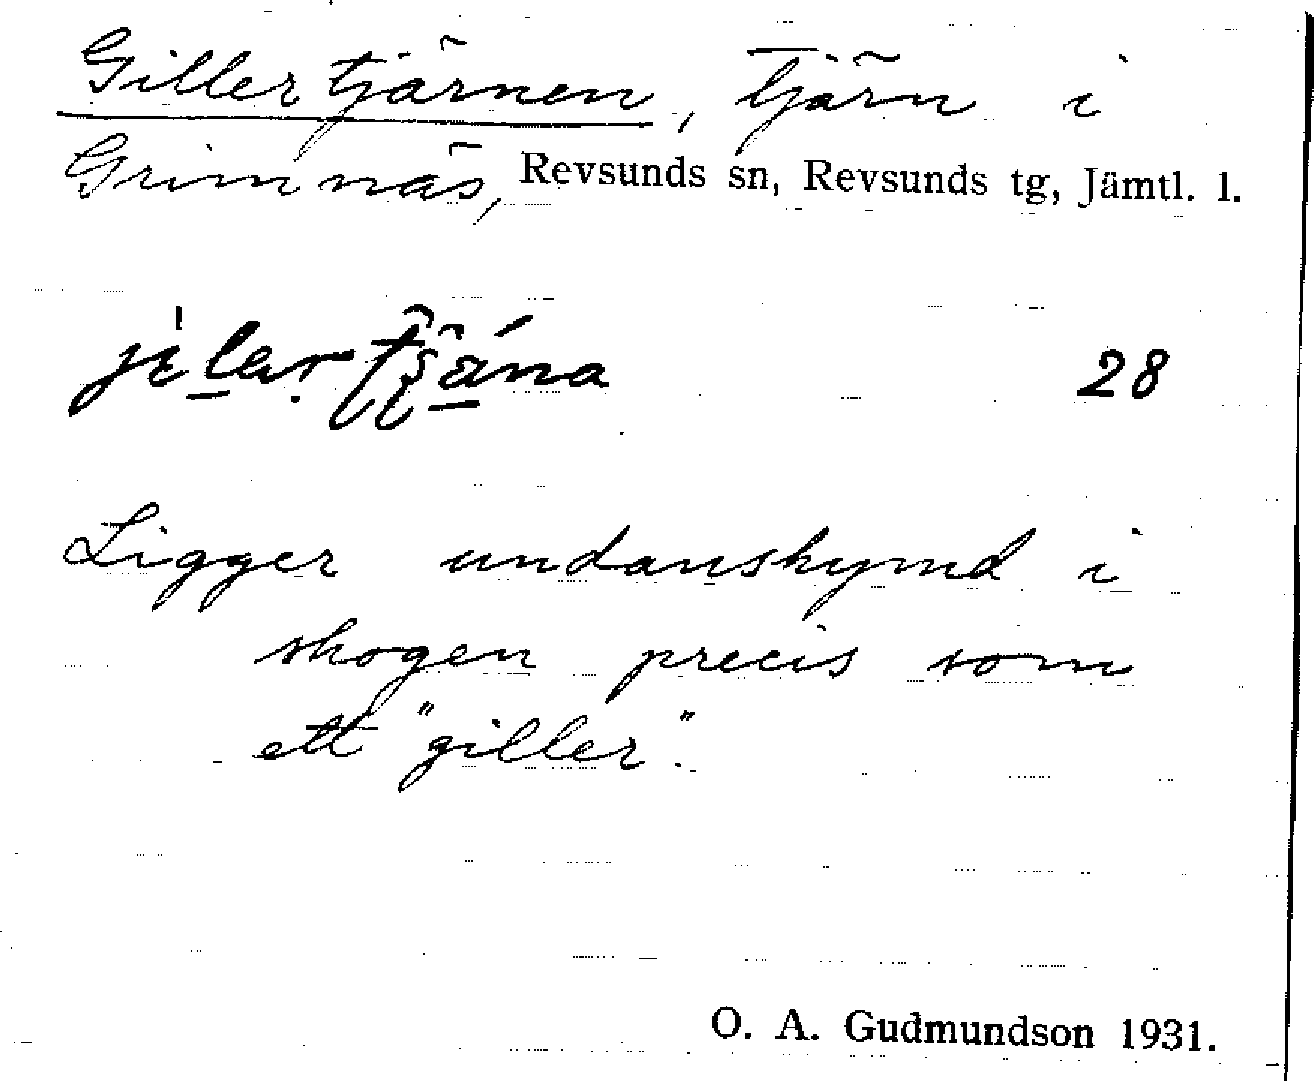 Gillertjärnen, tjärn i
Grimnäs, Revsunds sn, Revsunds tg, Jämtl. l.
28
Ligger undanskymd i
skogen precis som
ett "giller".
O. A. Gudmundson 1931.